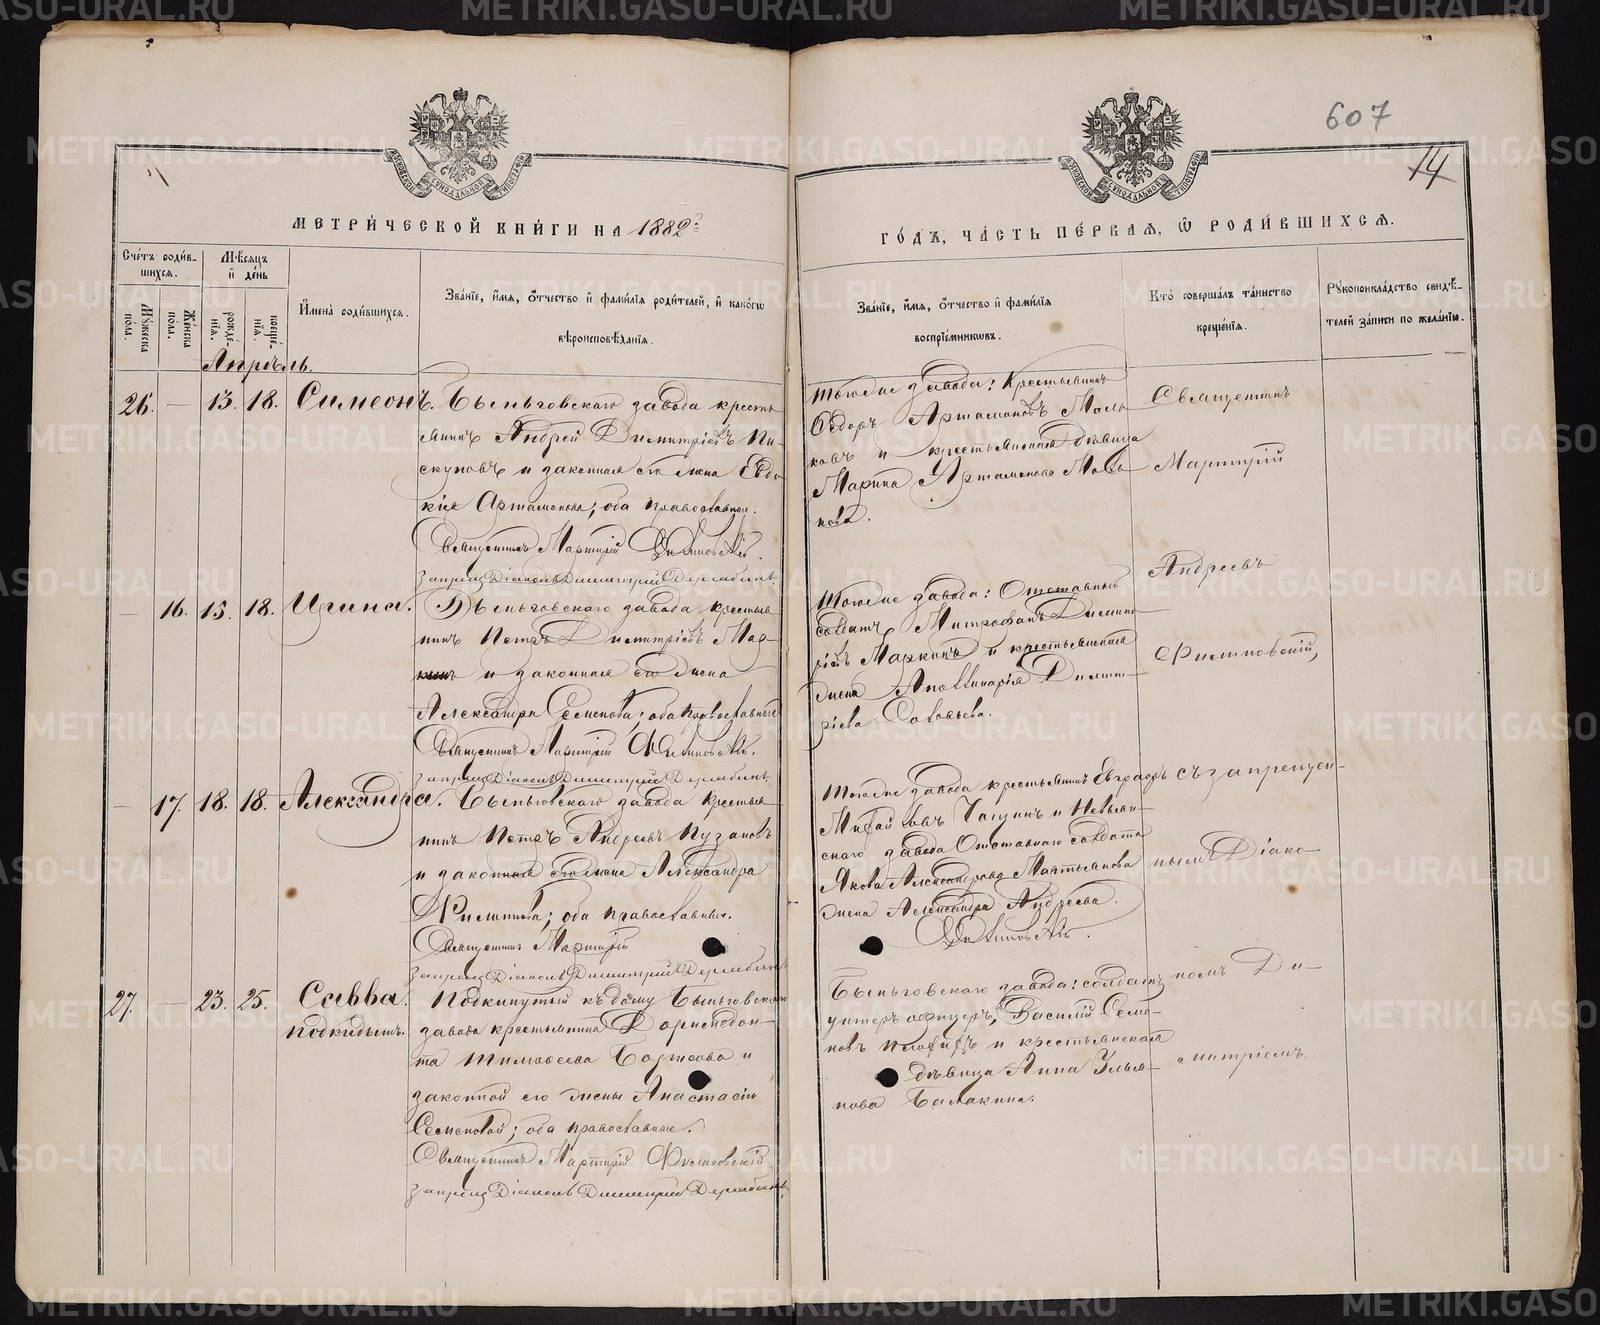 607
14
МОСКОВСКОЙ СУНОДАЛЬНОЙ ТѴПОГРАФІИ
МОСКОВСКОЙ СУНОДАЛЬНОЙ ТѴПОГРАФІИ
МЕТРИ́ЧЕСКОЙ КНИ́ГИ НА 1882й
ГО́ДЪ, ЧА́СТЬ ПЕ́РВАЯ, Ѡ РОДИ́ВШИХСЯ.
Сче́тъ роди́в-
шихся.
Му́жеска по́ла.
Же́нска по́ла.
Мѣ́сяцъ
и де́нь
рожде́-нія.
креще́-нія.
И҆мена̀ роди́вшихся.
Зва́ніе, и҆мя, о҆тчество и҆ фами́лія роди́телей, и҆ како́гѡ
вѣроисповѣ́данія.
Зва́ніе, и҆мя, о҆тчество и҆ фами́лія
воспріе́мниковъ.
Кто̀ соверша́лъ та́инство
креще́нія.
Рꙋкоприкла́дство свидѣ́-
телей за́писи по жела́нію.
Апрѣль.
26. — 13. 18. Симеонъ. Быньговскаго завода кресть
янинъ Андрей Димитріевъ Пи-
скуновъ и законная его жена Евдо
кія Артамонова; оба православные.
Священникъ Мартирій Филиповскій.
Запрещ Діаконъ Димитрій Дерябинъ.
Тогоже завода: Крестьянинъ
Ѳедоръ Артамоновъ Маль
ковъ и крестьянская дѣвица
Марина Артамонова Маль
кова.
Священникъ
Мартирій
Андреевъ
Филиповскій,
— 16. 15. 18. Ирина. Быньговскаго завода крестья
нинъ Петръ Димитріевъ Мар-
кинъ и законная его жена
Александра Семенова; оба православные
Священникъ Мартирій Филиповскій.
Запрещ Діаконъ Димитрій Дерябинъ
Тогоже завода: Отставный
солдатъ Митрофанъ Димит
ріевъ Маркинъ и крестьянская
жена Аполлинарія Димит-
ріева Соловьева.
— 17. 18. 18. Александра. Быньговскаго завода крестья-
нинъ Петръ Андреевъ Пузановъ
и законная его жена Александра
Филипова; оба православные.
Священникъ Мартирій
Филиповскій.
Запрещ Діаконъ Димитрій Дерябинъ
Тогоже завода крестьянинъ Евграфъ
Михайловъ и Невьян-
скаго завода Отставнаго солдата
Якова Александрова Мартьянова
жена Александра Андреева.
съ запрещен-
нымъ Діако-
номъ Ди-
митріемъ.
27. — 23. 25. Савва.
подкидышъ.
Подкинутый къ дому Быньговскаго
завода крестьянина Дорисидон-
та Тимоѳеева и
законной его жены Анастасіи
Семеновой; оба православные.
Священникъ Мартирій Филиповскій
Запрещ Діаконъ Димитрій Дерябинъ.
Быньговскаго завода: солдатъ
унтеръ офицеръ, Василій Семе-
новъ и крестьянская
дѣвица Анна Улья-
нова Балакина.
METRIKI.GASO-URAL.RU